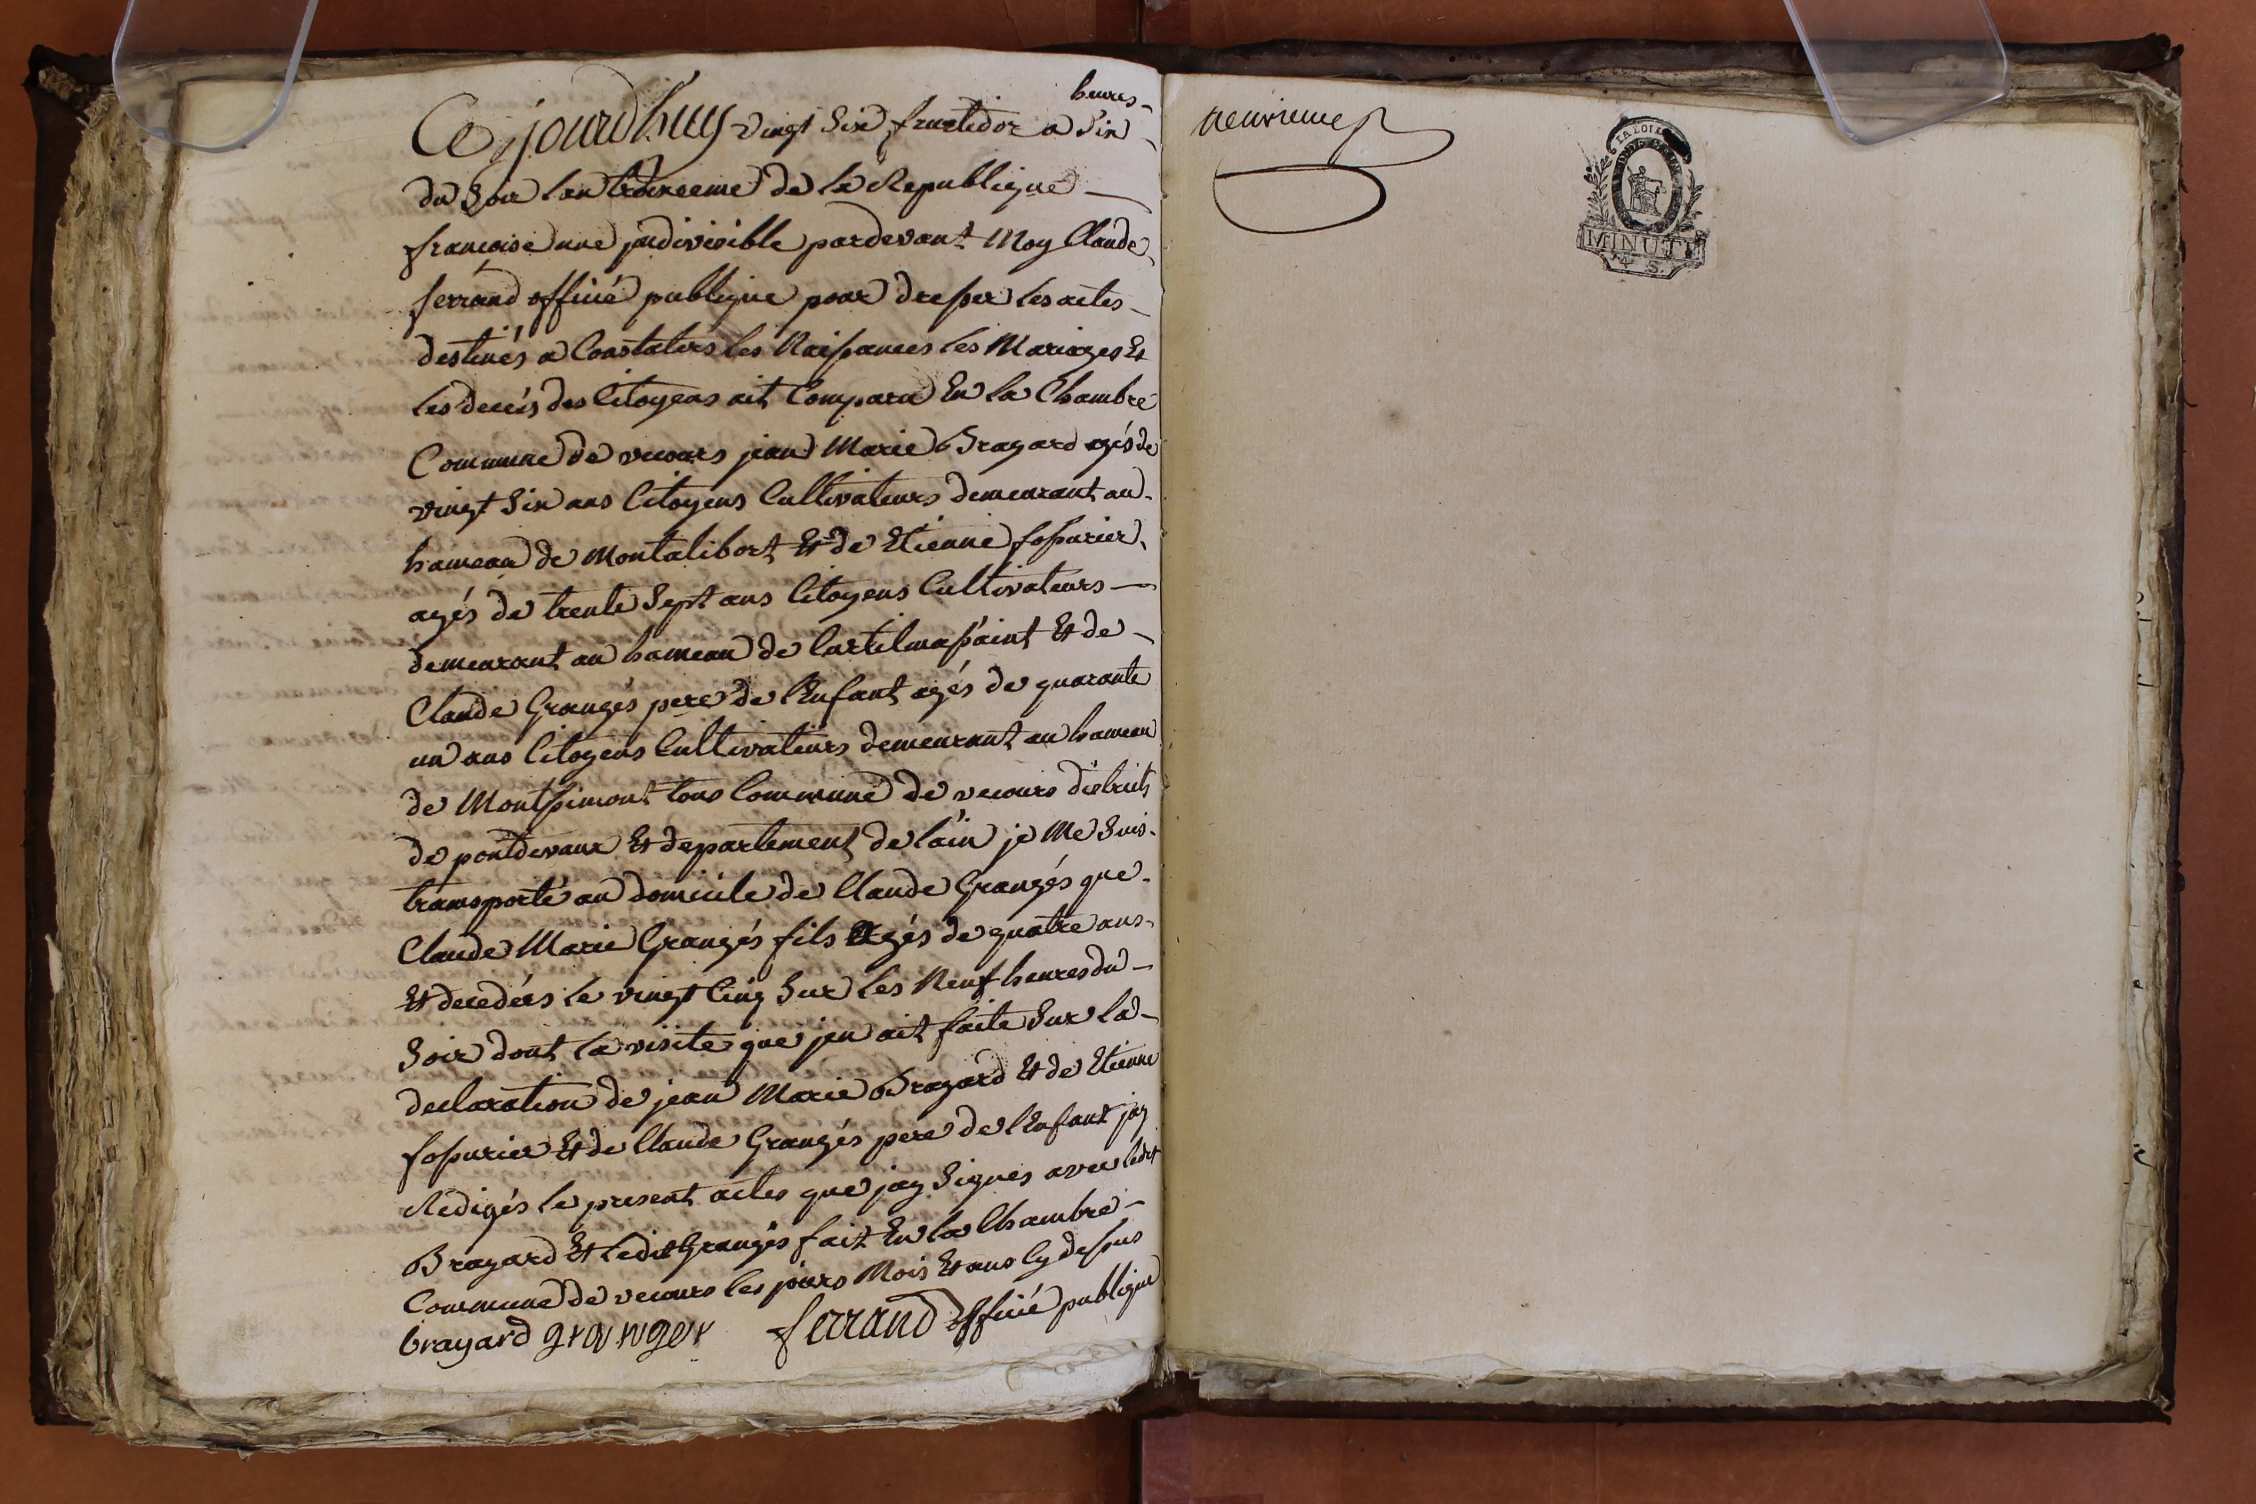 heures
Ce jourdhuy vingt Six fructidor a Six
du Soir lan troiseme de la Republique
francoise une jndivisible pardevant Moy Claude
ferrand officié publique pour dresser les actes
destinés a Constaters les Naissances les Mariages Et
les decés des Citoyens ait Comparu En la Chambre
Commune de vecours jean Marie Brayard agés de
vingt Six ans Citoyens Cultivateurs demeurant au
hameau de Montalibort Et de Etienne fossurier
agés de trente Sept ans Citoyens Cultivateurs
demeurant au hameau de Et de
Claude Grangés pere de l'Enfant agés de quarante
un ans Citoyens Cultivateurs demeurant au hameau
de Montsimont tous Commune de vecours districts
de pontdevaux Et departement de lain je Me Suis
transporté au domicile de Claude Grangés que
Claude Marie Grangés fils Agés de quatre ans
Et decedées le vingt Cinq Sur les Neuf heures du
Soir dont la visite que jen ait faite Sur la
declaration de jean Marie Brayard Et de Etienne
fossurier Et de Claude Grangés pere de l'Enfant jay
Redigés le present actes que jay Signés avec ledit
Brayard Et ledit Grangés fait En la Chambre
Commune de vecours les jours Mois Et ans Cy dessus
brayard granger ferrand officié publique
neuvieme
LA LOI
MINUTE
4 S.